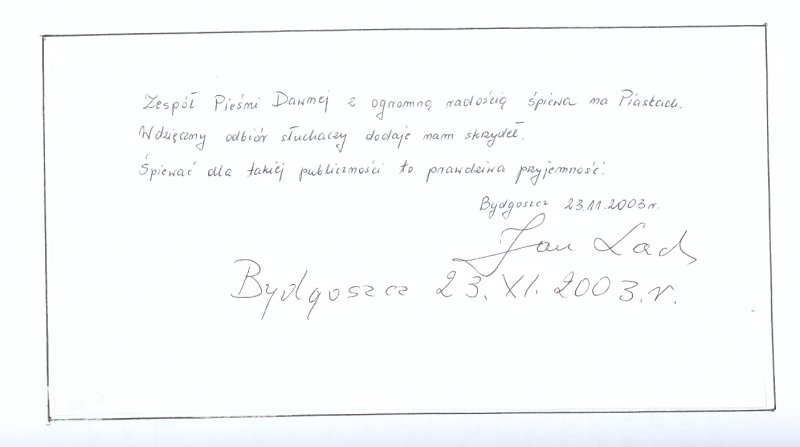 Zespół Pieśni Dawnej z ogromną radością śpiewa na Piaskach.
Wdzięczny odbiór słuchaczy dodaje nam skrzydeł.
Śpiewać dla takiej publiczności to prawdziwa przyjemność.
Bydgoszcz 23.11.2003 r.
Jan Lach
Bydgoszcz 23. XI. 2003. r.